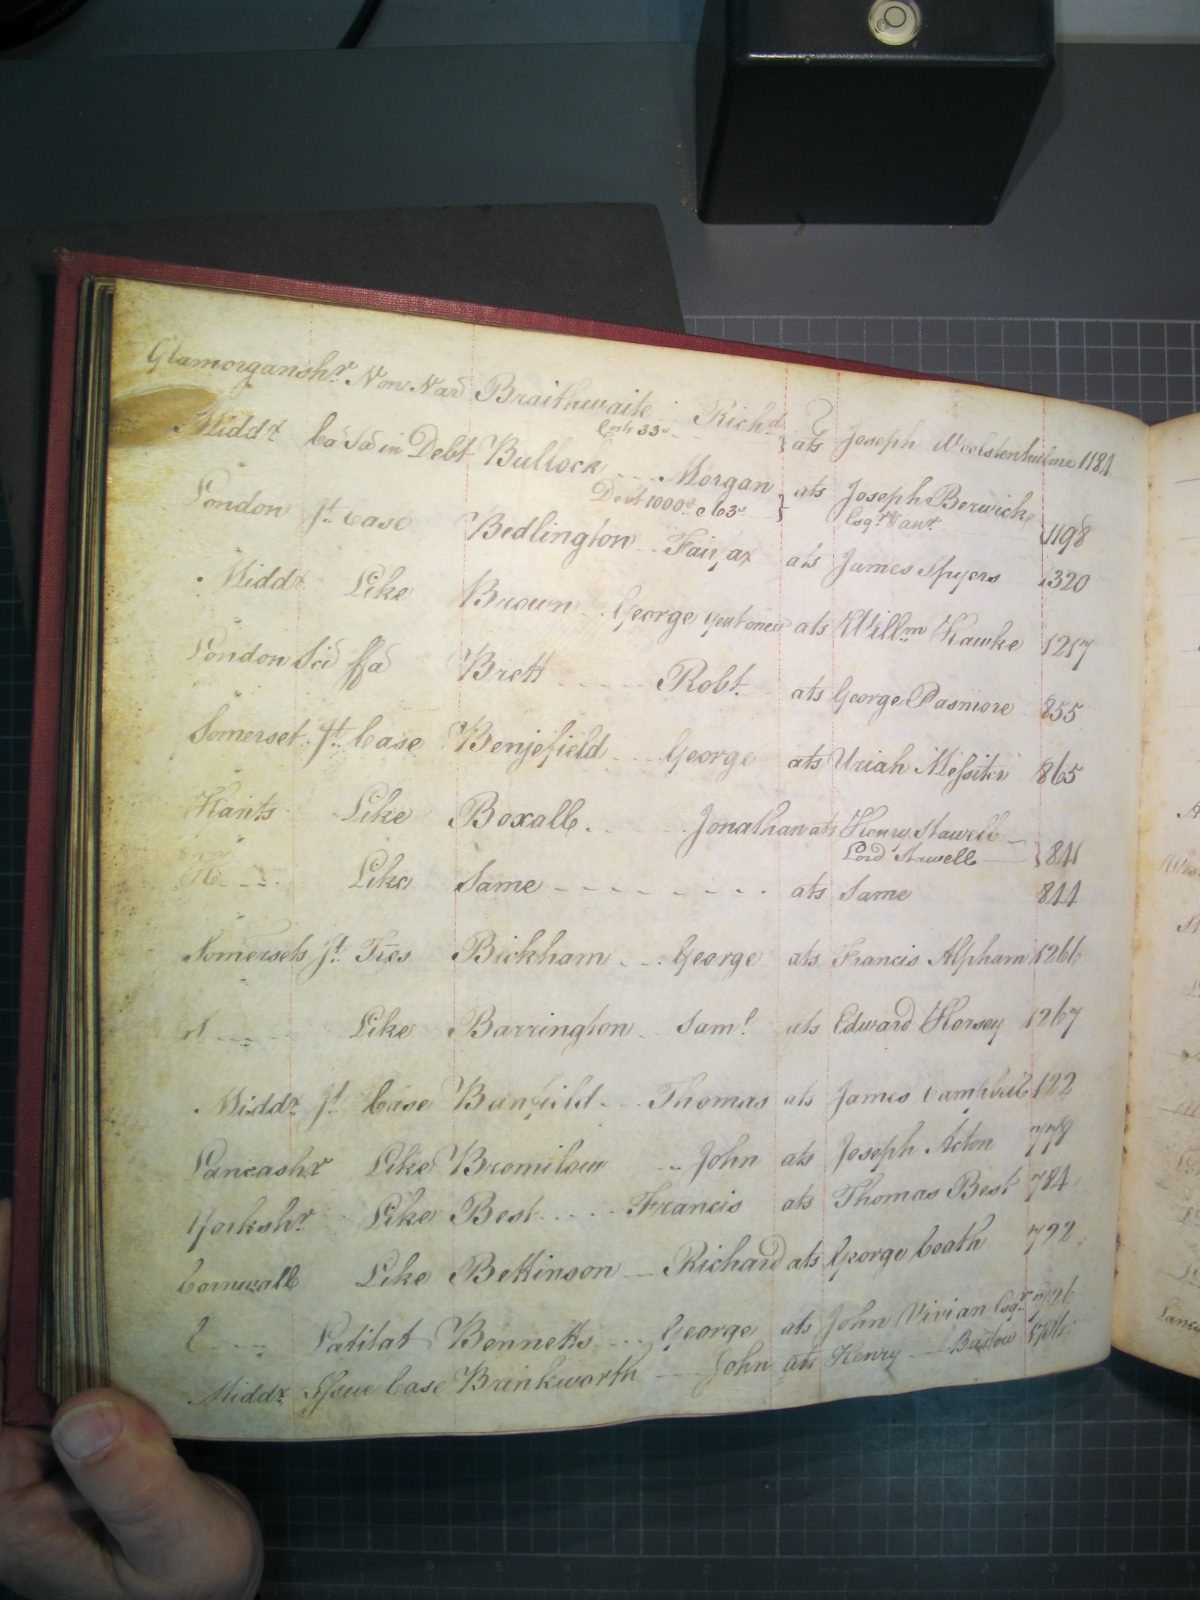 Glamorgansh.r Non Nar̄ Braithwaite Rich.d ats Joseph Woolstenhulme 1181
Costs 33s
Midd.x Ca Sa in Debt Bullock Morgan ats Joseph Berwick
Debt 1000£ c 63s Esq.r 1198
London J.t Case Bedlington Fairfax ats James Spyers 1320
Midd.x Like Brown George ats Will.m Hawke 1217
London Sci ffa Brett Rob.t ats George Pasmore 855
Somerset J.t Case Benjefield George ats Uriah Messiter 865
Hants Like Boxall Jonathan ats Henry Stawell
Lord Stawell 841
H Like Same ats Same 844
Somersets J.t Tres Bickham George ats Francis Alpham 1266
S Like Barrington Sam.l ats Edward Horsey 1267
Midd.x J.t Case Banfield Thomas ats James Campbell 122
Lancash.r Like Bromilow John ats Joseph Acton 778
Yorksh.r Like Best Francis ats Thomas Best 784
Cornwall Like Bettinson Richard ats George Coath 792
C Latitat Bennetts George ats John Vivian Esq.r 726
Midd.x Issue Case Brinkworth John ats Henry Bristow